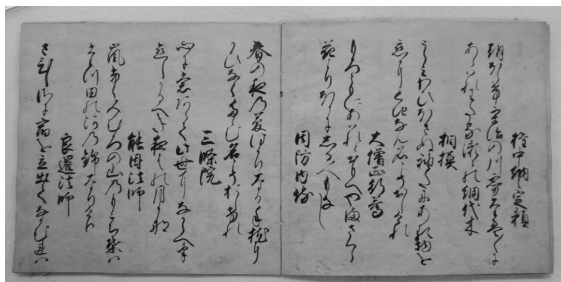 權中納言定頼
朝ほらけ宇治の川霧たえ〳〵に
あらはれわたる瀬々の網代木
相模
うらみわひほさぬ袖たにある物を
恋にくちなむ名こそおしけれ
大僧正行尊
もろともにあはれとおもへ山さくら
花よりほかにしる人もなし
周防内侍
春の夜の夢はかりなる手枕に
かひなくたゝむ名こそおしけれ
三條院
心にもあらて此世になからへは
恋しかるへき夜半の月かな
能因法師
嵐吹みむろの山のもみち葉は
立田の河の錦なりけり
良暹法師
さひしさに宿を立出てなかむれは